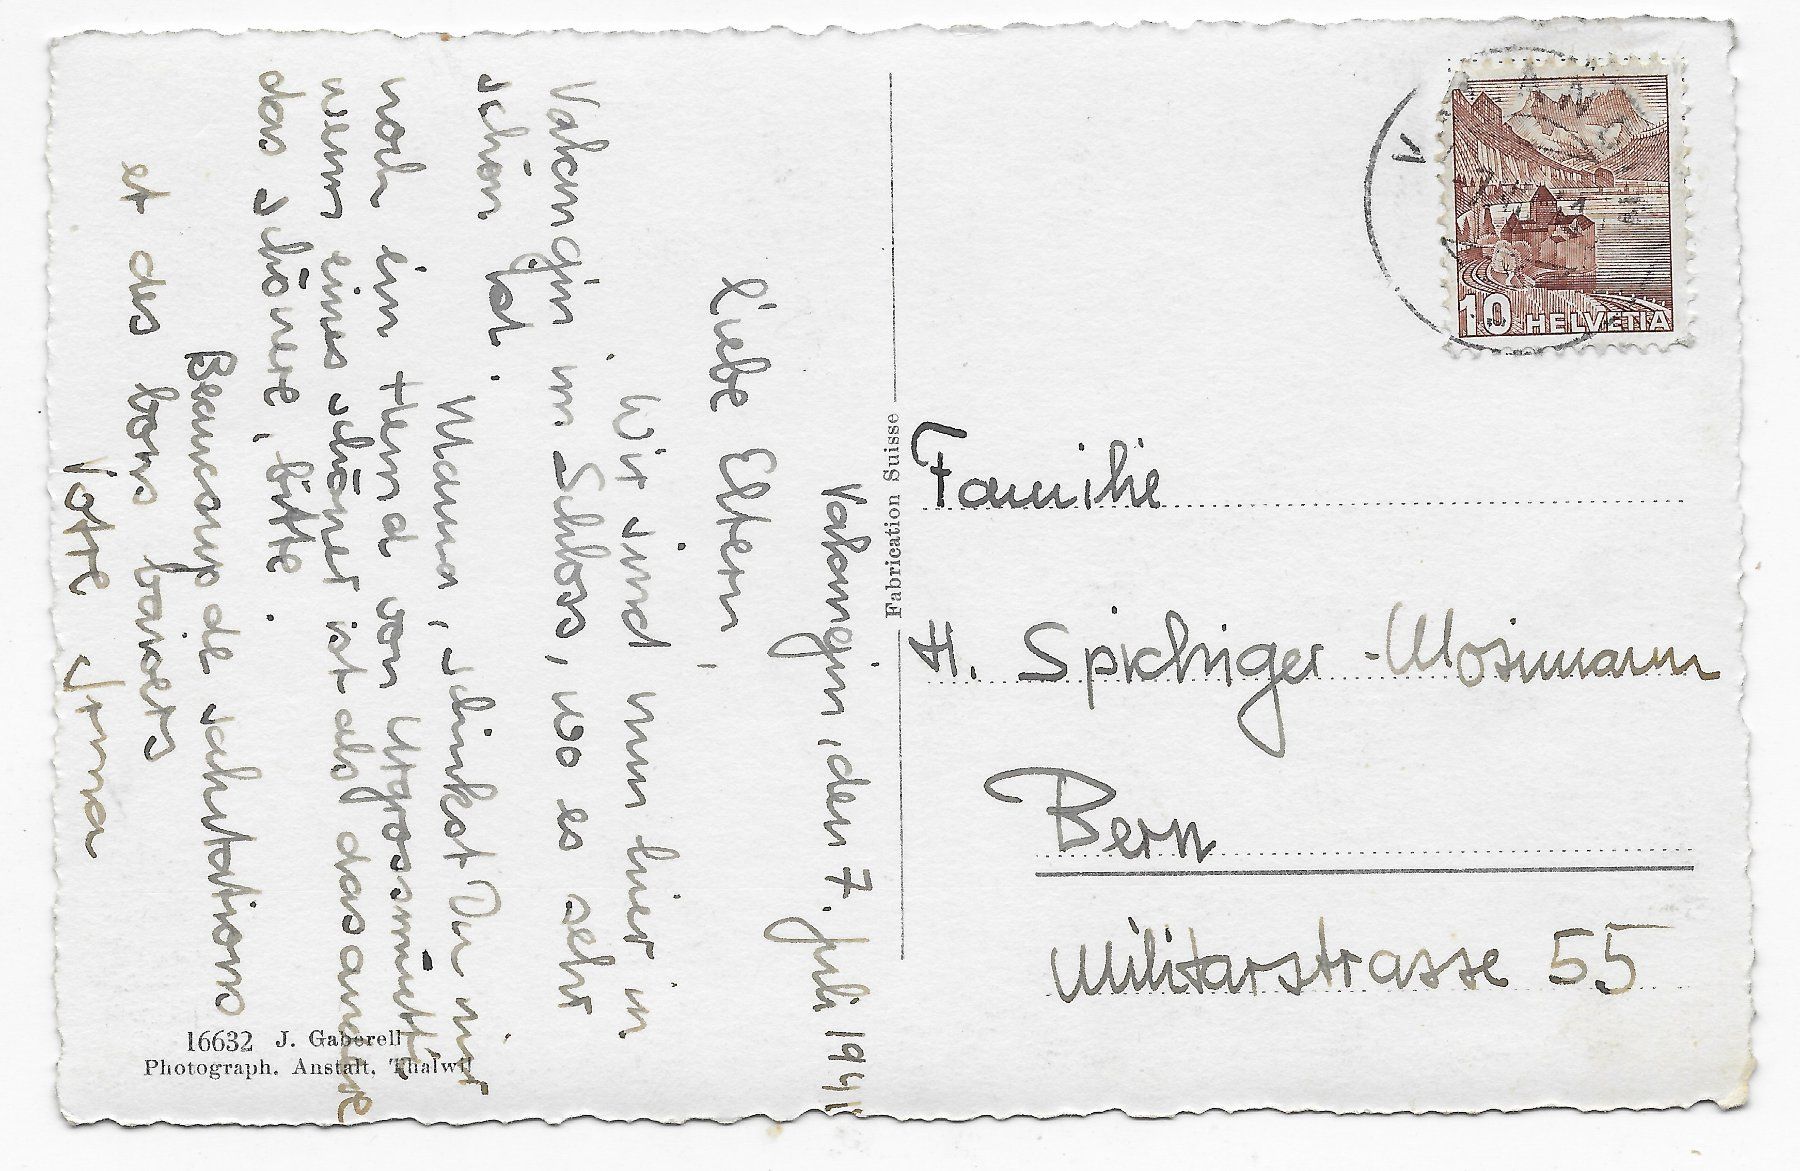 Valangin, den 7. Juli 1941
Liebe Eltern,
Wir sind nun hier in
Valangin im Schloss, wo es sehr
schön ist.
Mama, schickst Du mir
noch ein Hemd von Urgrossmutti,
wenn eines schöner ist als das andere
das schönere, bitte.
Beaucoup de salutations
et des bons baisers
Votre Irma
16632 J. Gaberell
Photograph. Anstalt, Thalwil
Fabrication Suisse
10 HELVETIA
Familie
H. Spichiger-Mosimann
Bern
Militarstrasse 55